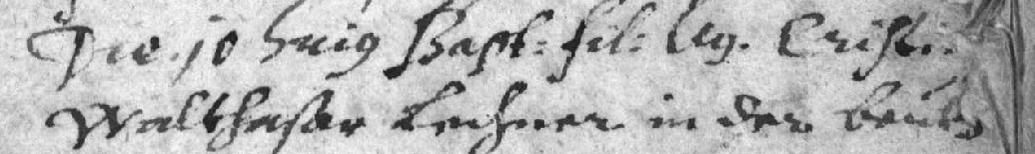 Die. 10 huig Bapt: fil: leg. Cristi:
Walthasar Lechner in der